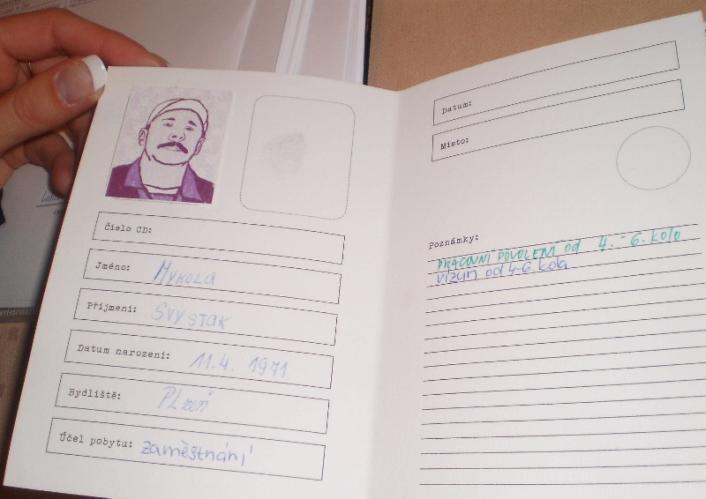 Číslo CD:
Jméno: Mykola
Příjmení: Svystak
Datum narození: 11.4. 1971
Bydliště: Plzeň
Účel pobytu: zaměstnání
Datum:
Místo:
Poznámky:
PRACOVNÍ POVOLENÍ od 4. - 6. kolo
vízum od 4-6. kola